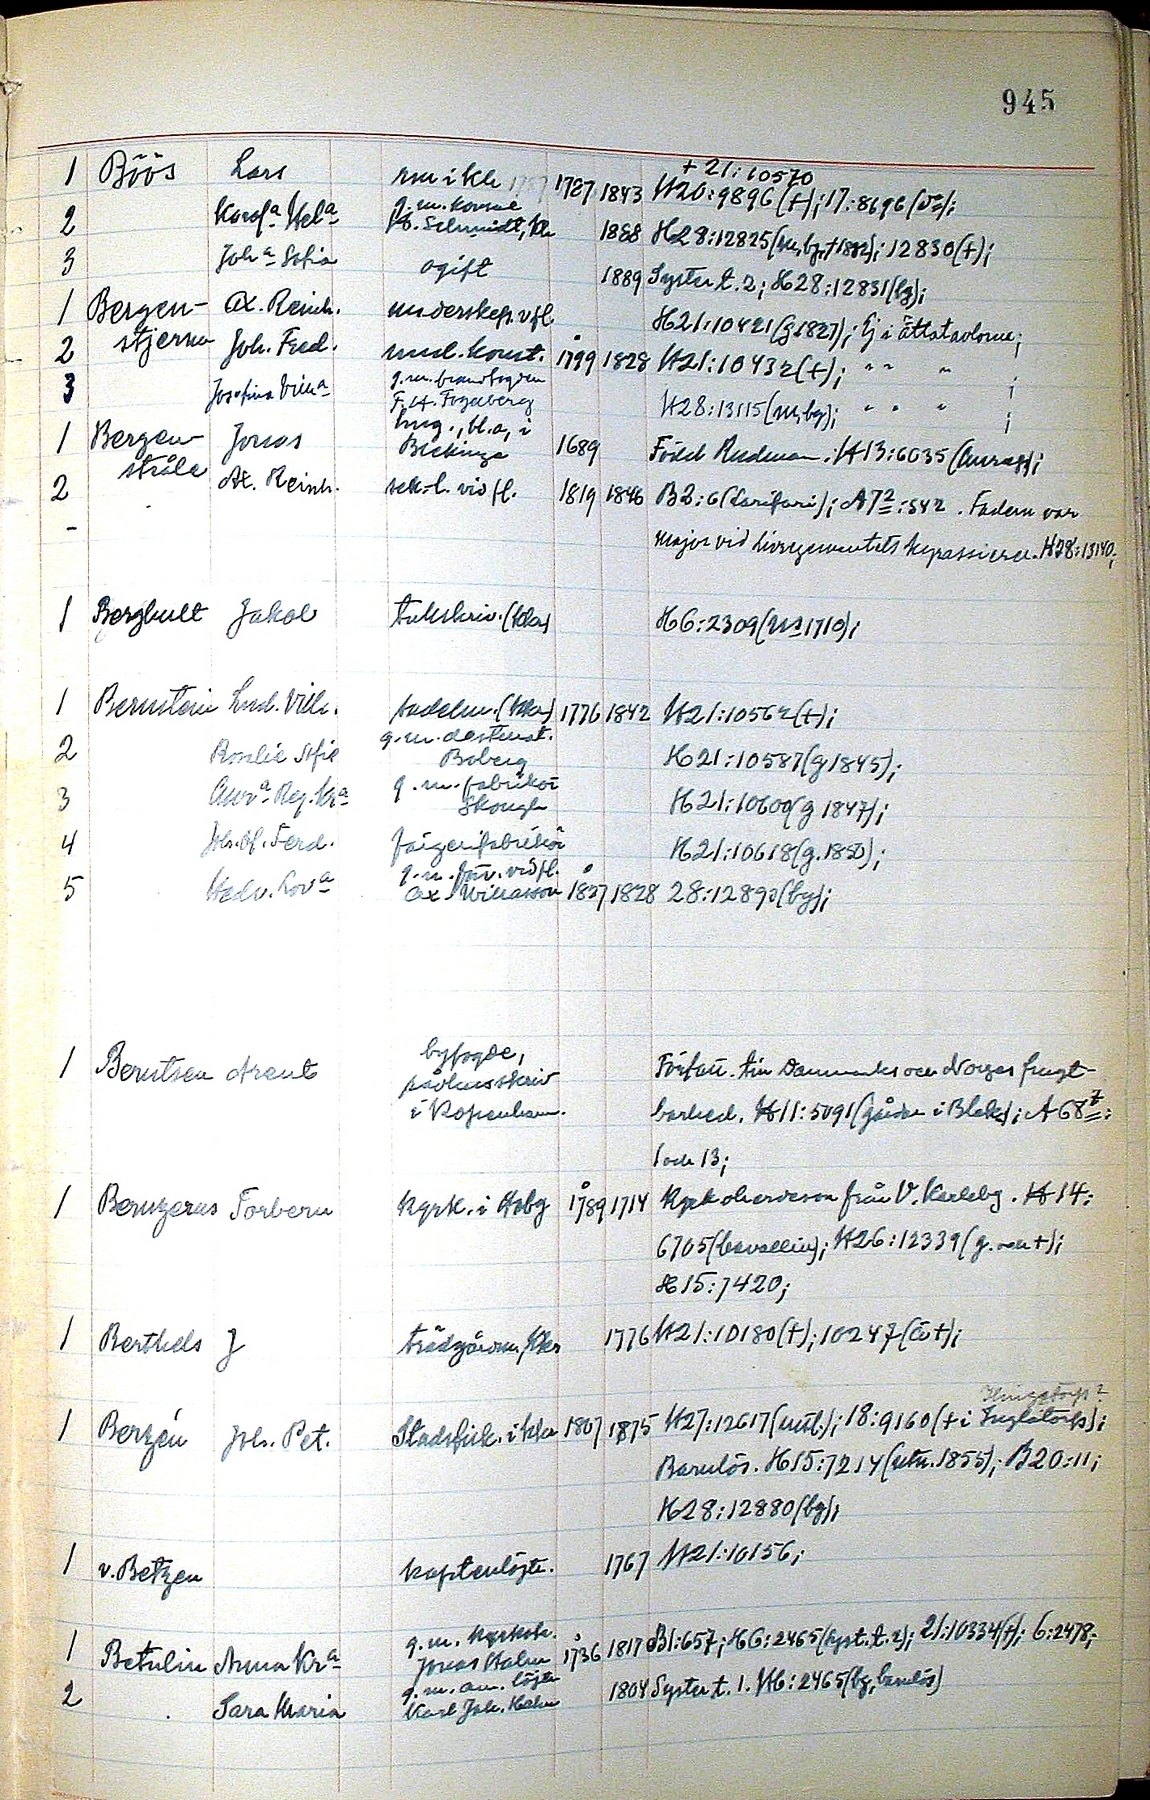 945
+ 21:10570
1 Böös Lars rm i Kh 1787 1727 1843 H20:9896(+); 17:8696(d:o);
g.m. konsul
2 Karol:a Hel:a H. Schmidt, Kh 1888 H28:12825(m, bg, +1882); 12830(+);
3 Joh:a Sofia ogift 1889 Syster t. 2; H28:12831(bg);
1 Bergen- Ax. Reinh. underskep. vfl. H21:10421(g1827); Ej i ättatavlorna;
2 stjerna Joh. Fred. und. konst. 1799 1828 H21:10432(+); " " " ;
g.m. brandfogden
3 Josefina Vilh:a F. A. Fogelberg H28:13115(m, bg); " " " ;
hmg., bl.a. i
1 Bergen- Jonas Blekinge 1689 Född Rudman. H13:6035
2 stråle Ax. Reinh. sek.l. vid fl. 1819 1846 B2:6(Larifari); A7²:542. Fadern var
- major vid Livregementets kyrassierer. H28:13140;
1 Berghult Jakob tullskriv. (Kka) H6:2309(m1710);
1 Bernstein Lud. Vilh. sadelm. (Kka) 1776 1842 H21:10562(+);
g.m. destinat.
2 Rosalie Sofie Boberg H21:10587(g1845);
g.m. fabrikör
3 Aur:a Reg. Kr:a Skough H21:10600(g1847);
4 Joh. Af. Ferd. färgerifabrikör H21:10618(g.1850);
g.m. förv. vid fl.
5 Hedv. Lov:a Ax. Willasson 1827 1828 28:12890(bg);
byfogde,
1 Berntsen Arent rådhusskriv Författ. till Danmarks och Norges frugt-
i Kopenham. barhed. H11:5091(gården i Blek); A68²:
1 och 13;
1 Beruzerus Torbern Kyrk. i Hbg 1789 1714 Kyrkoherdeson från V. Karleby. H14:
6705(Cavallin); H26:12339(g. och +);
H15:7420;
1 Berthels J trädgårdm, Kka 1776 H21:10180(+); 10247(ä +);
Hingetorp?
1 Berzén Joh. Pet. Stadsfisk. i Kka 1807 1875 H27:12617(utn.); 18:9160(+ i Inglatorp);
Barnlös. H15:7214(utn. 1855); B20:11;
H28:12880(bg);
1 v. Betzen kaptenlöjtn. 1767 H21:10156;
g.m. kyrkoh.
1 Betulin Anna Kr:a Jonas Halm 1736 1817 B1:657; H6:2465(Syst. t. 2); 21:10334(+); 6:2478;
g.m. am. löjtn
2 Sara Maria Karl Joh. Hahn 1804 Syster t. 1. H6:2465(bg, barnlös)